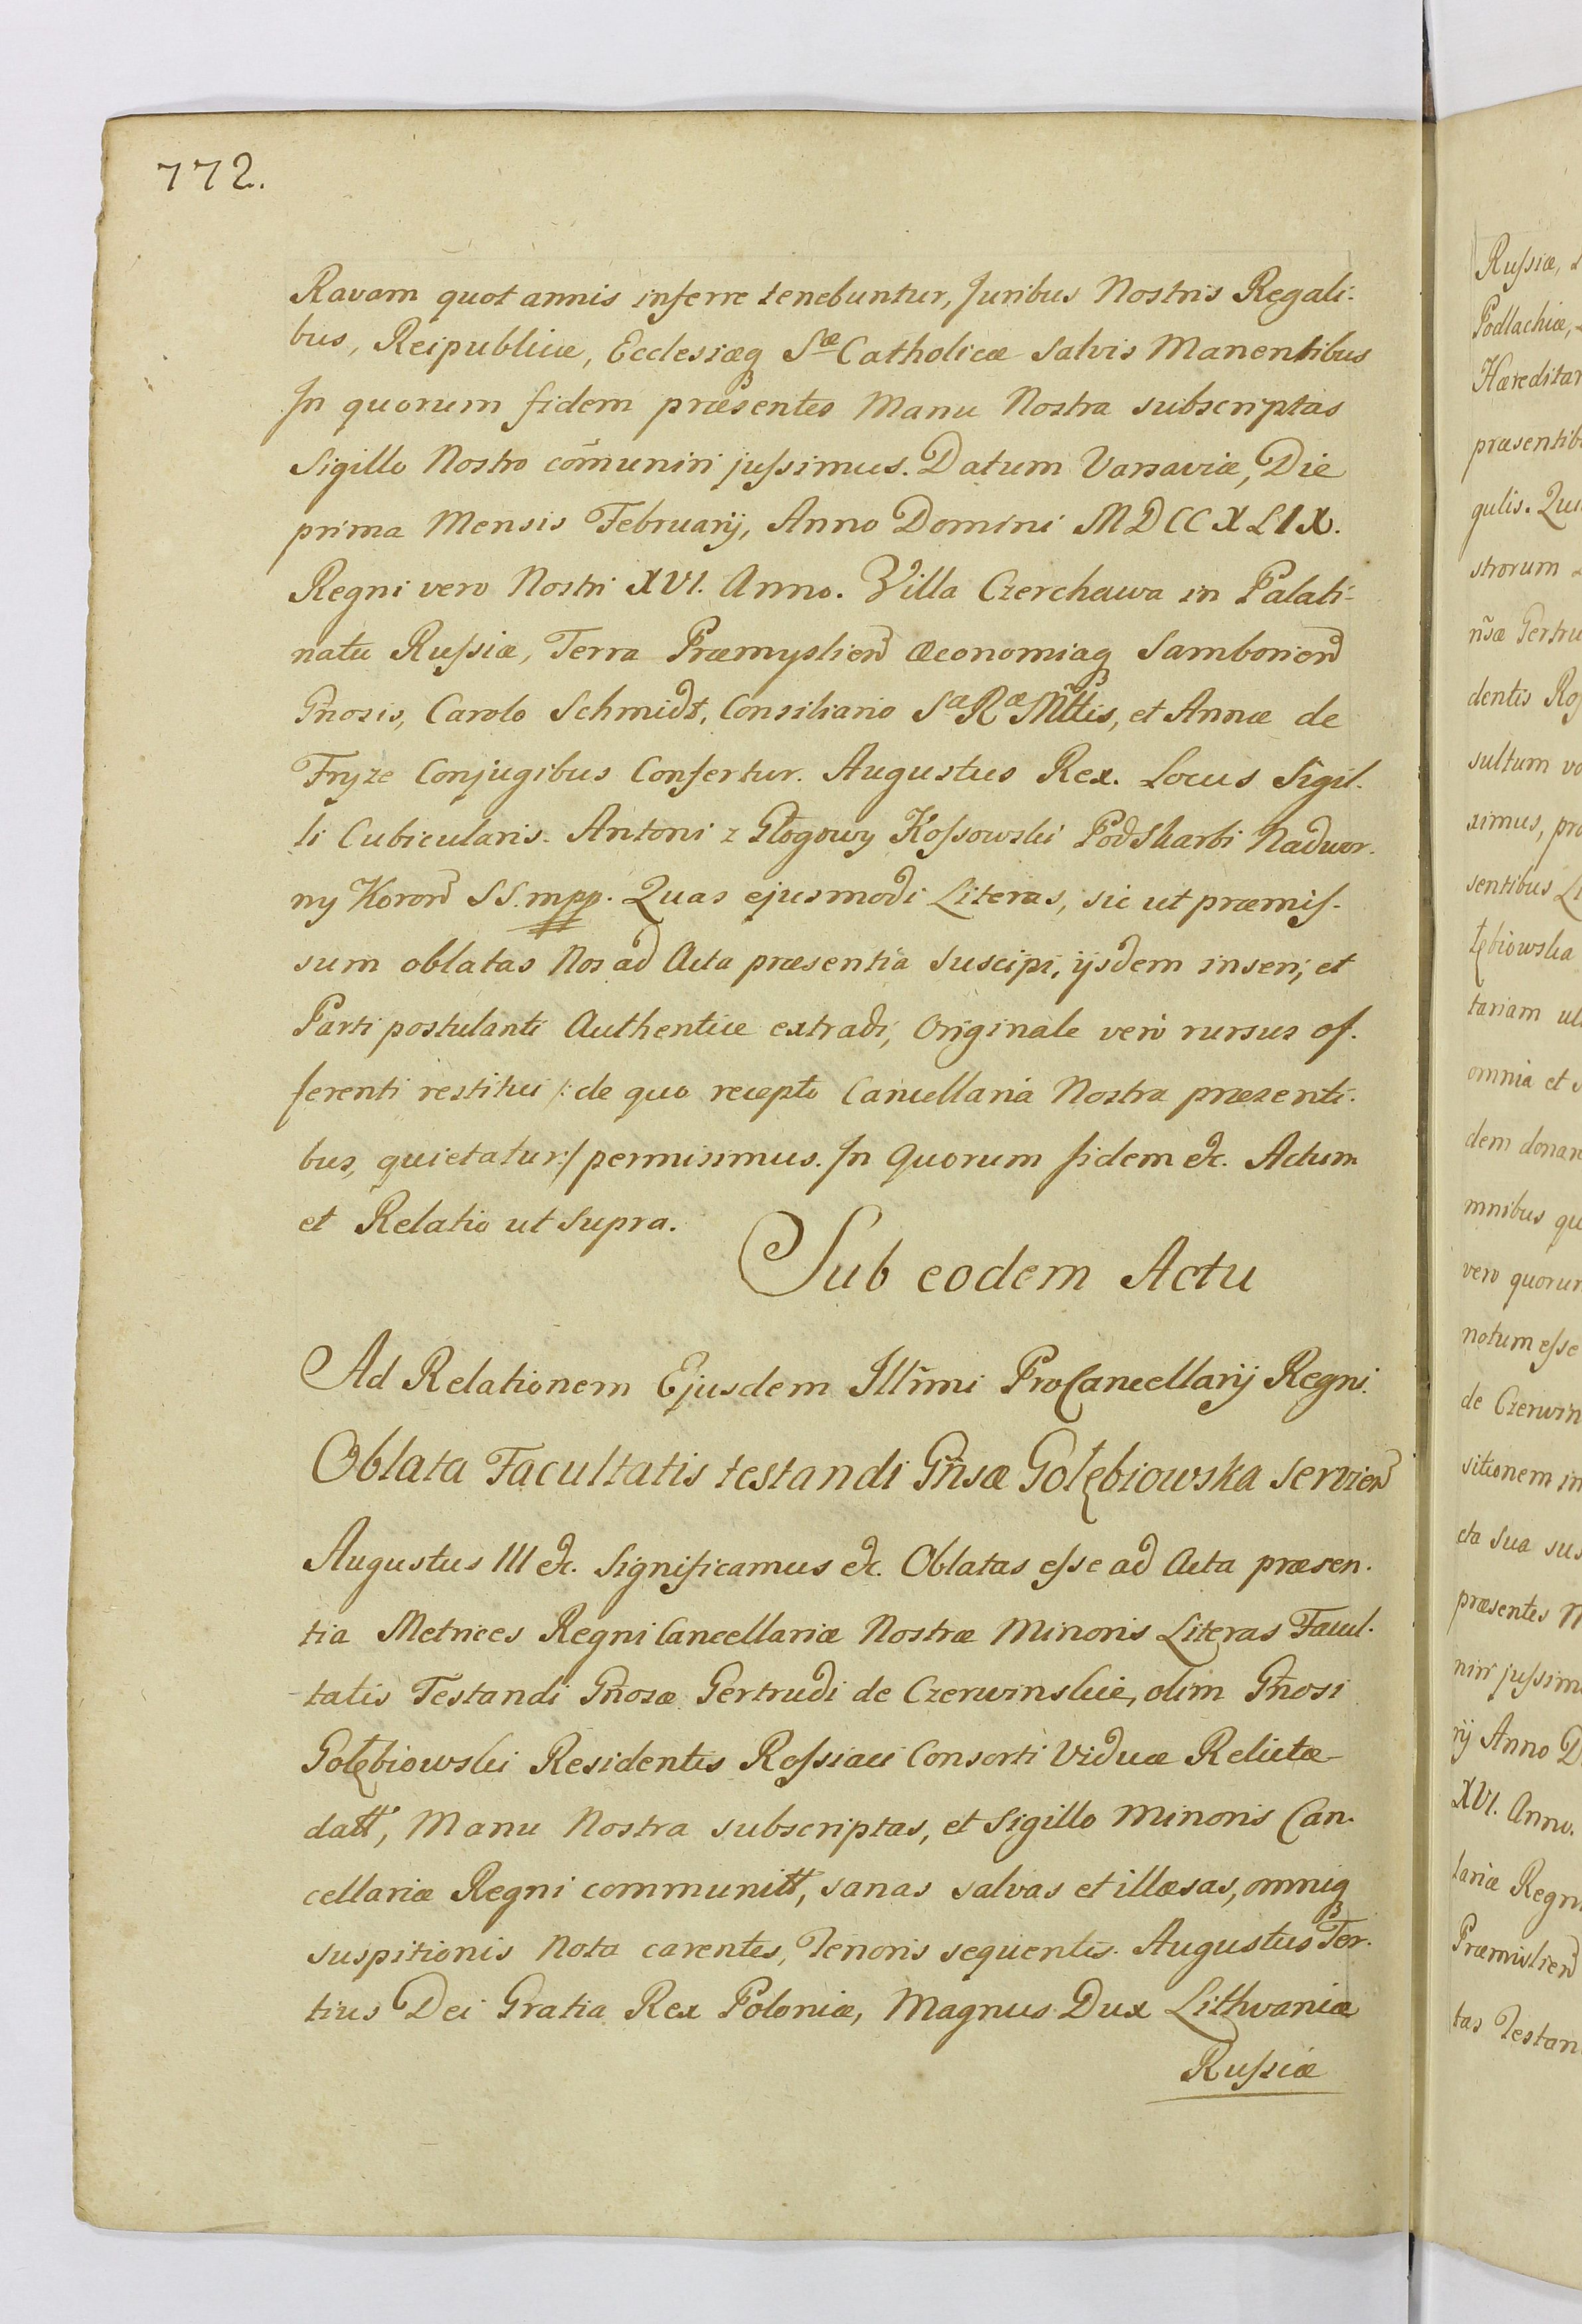 772.
Ravam quot annis inferre tenebuntur, Juribus Nostris Regali-
bus, Reipublicæ, Ecclesiæq Sæ Catholicæ Salvis Manentibus
In quorum fidem præsentes Manu Nostra subscriptas
Sigillo Nostro com̃uniri jussimus. Datum Varsaviæ, Die
prima Mensis Februarij, Anno Domini MDCCXLIX.
Regni vero Nostri XVI. Anno. Villa Czerchawa in Palati-
natu Russiæ, Terra Præmyslien Œconomiaq Samborien
Gñosis, Carolo Schmidt, Consiliario Sæ Ræ Mttis, et Annæ de
Fryze Conjugibus Confertur. Augustus Rex. Locus Sigil-
li Cubicularis. Antoni z Głogowy Kossowski PodSkarbi Nadwor-
ny Koron SS. mpp. Quas ejusmodi Literas, sic ut præmis-
sum oblatas Nos ad Acta præsentia Suscipi, ijsdem inseri, et
Parti postulanti Authentice extradi, Originale verò rursus of-
ferenti restitui /: de quo recepto Cancellaria Nostra præsenti-
bus, quietatur :/ permisimus. In Quorum fidem etc. Actum
et Relatio ut Supra.
Sub eodem Actu
Ad Relationem Ejusdem Illm̃i ProCancellarij Regni.
Oblata Facultatis testandi Gñsæ Gołębiowska servien
Augustus III etc. Significamus etc. Oblatas esse ad Acta præsen-
tia Metrices Regni Cancellariæ Nostræ Minoris Literas Facul-
tatis Testandi Gñosæ Gertrudi de Czerwinskie, olim Gñosi
Gołębiowski Residentis Rossiaci Consorti Viduæ Relictæ
datt, Manu Nostra subscriptas, et Sigillo Minoris Can-
cellariæ Regni communitt, sanas salvas et illæsas, omniq
suspitionis Nota carentes, Tenoris sequentis. Augustus Ter-
tius Dei Gratia Rex Poloniæ, Magnus Dux Lithvaniæ
Russiæ
Russiæ,
Podlachiæ,
Hæreditar
præsentib
gulis. Qui
strorum
ñsæ Gertru
dentis Ros
sultum vo
ximus, pro
sentibus Li
łębiowska
tariam ul
omnia et
dem donan
mnibus qu
vero quorum
notum esse
de Czerwin
sitionem in
cta Sua sus
præsentes N
niri jussim
rij Anno D
XVI. Anno.
lariæ Regn
Præmislien
tas Testan